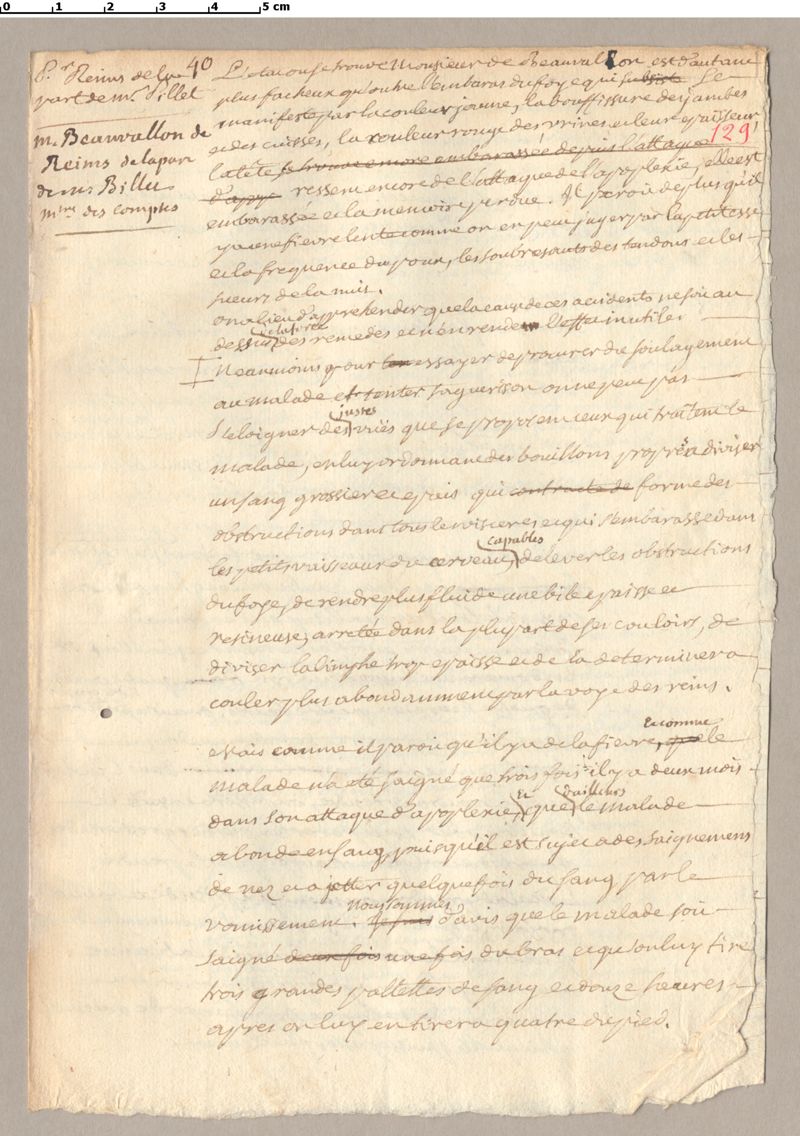 0 1 2 3 4 5 cm
40
Pr. Reims de la
part de mr. Pillet
m. Beauvallon de
Reims de la par
de mr Billet
mtre des comptes
129
L'etat ou se trouve Monsieur de Beauvallon est d'autant
plus facheux qu'outre l'embaras du foye qui subsiste se
manifeste par la couleur jaune, la bouffissure des jambes
et des cuisses, la couleur rouge des urines et leur epaisseur
la tête se trouve encore embarassée depuis l'attaque
d'appo ressent encore de l'attaque de l'apoplexie, elle est
embarassée et la memoire perdue. Il paroit de plus qu'il
y a une fievre lente comme on en peu juger par la petitesse
et la frequence du poux, les soubresauts des tendons et les
sueurs de la nuit.
on a lieu d'apprehender que la cause de ces accidents ne soit au
dessus de la force des remedes et n'en rende l'effet inutile.
Neanmoins pour essayer de procurer du soulagement
au malade et tenter sa guerison on ne peu pas
s'eloigner des justes vuës que se proposent ceux qui traitent le
malade, en luy ordonnant des bouillons propres a diviser
un sang grossier et epais qui contracte de forme des
obstructions dans tous les visceres et qui s'embarasse dans
les petits vaisseaux du cerveau, capables de lever les obstructions
du foye, de rendre plus fluide une bile epaisse et
resineuse, arretée dans la plupart de ses couloirs, de
diviser la limphe trop epaisse et de la determiner a
couler plus abondamment par la voye des reins.
Mais comme il paroit qu'il y a de la fievre, que Et comme le
malade n'a eté saigné que trois fois il y a deux mois
dans son attaque d'apoplexie, Et que d'ailleurs le malade
abonde en sang puisqu'il est sujet a des saignemens
de nez et a jetter quelquefois du sang par le
vomissement. Nous sommes d'avis que le malade soit
saigné deux fois une fois du bras et qu'on luy tire
trois grandes pallettes de sang et douze heures
apres on luy en tirera quatre du pied.